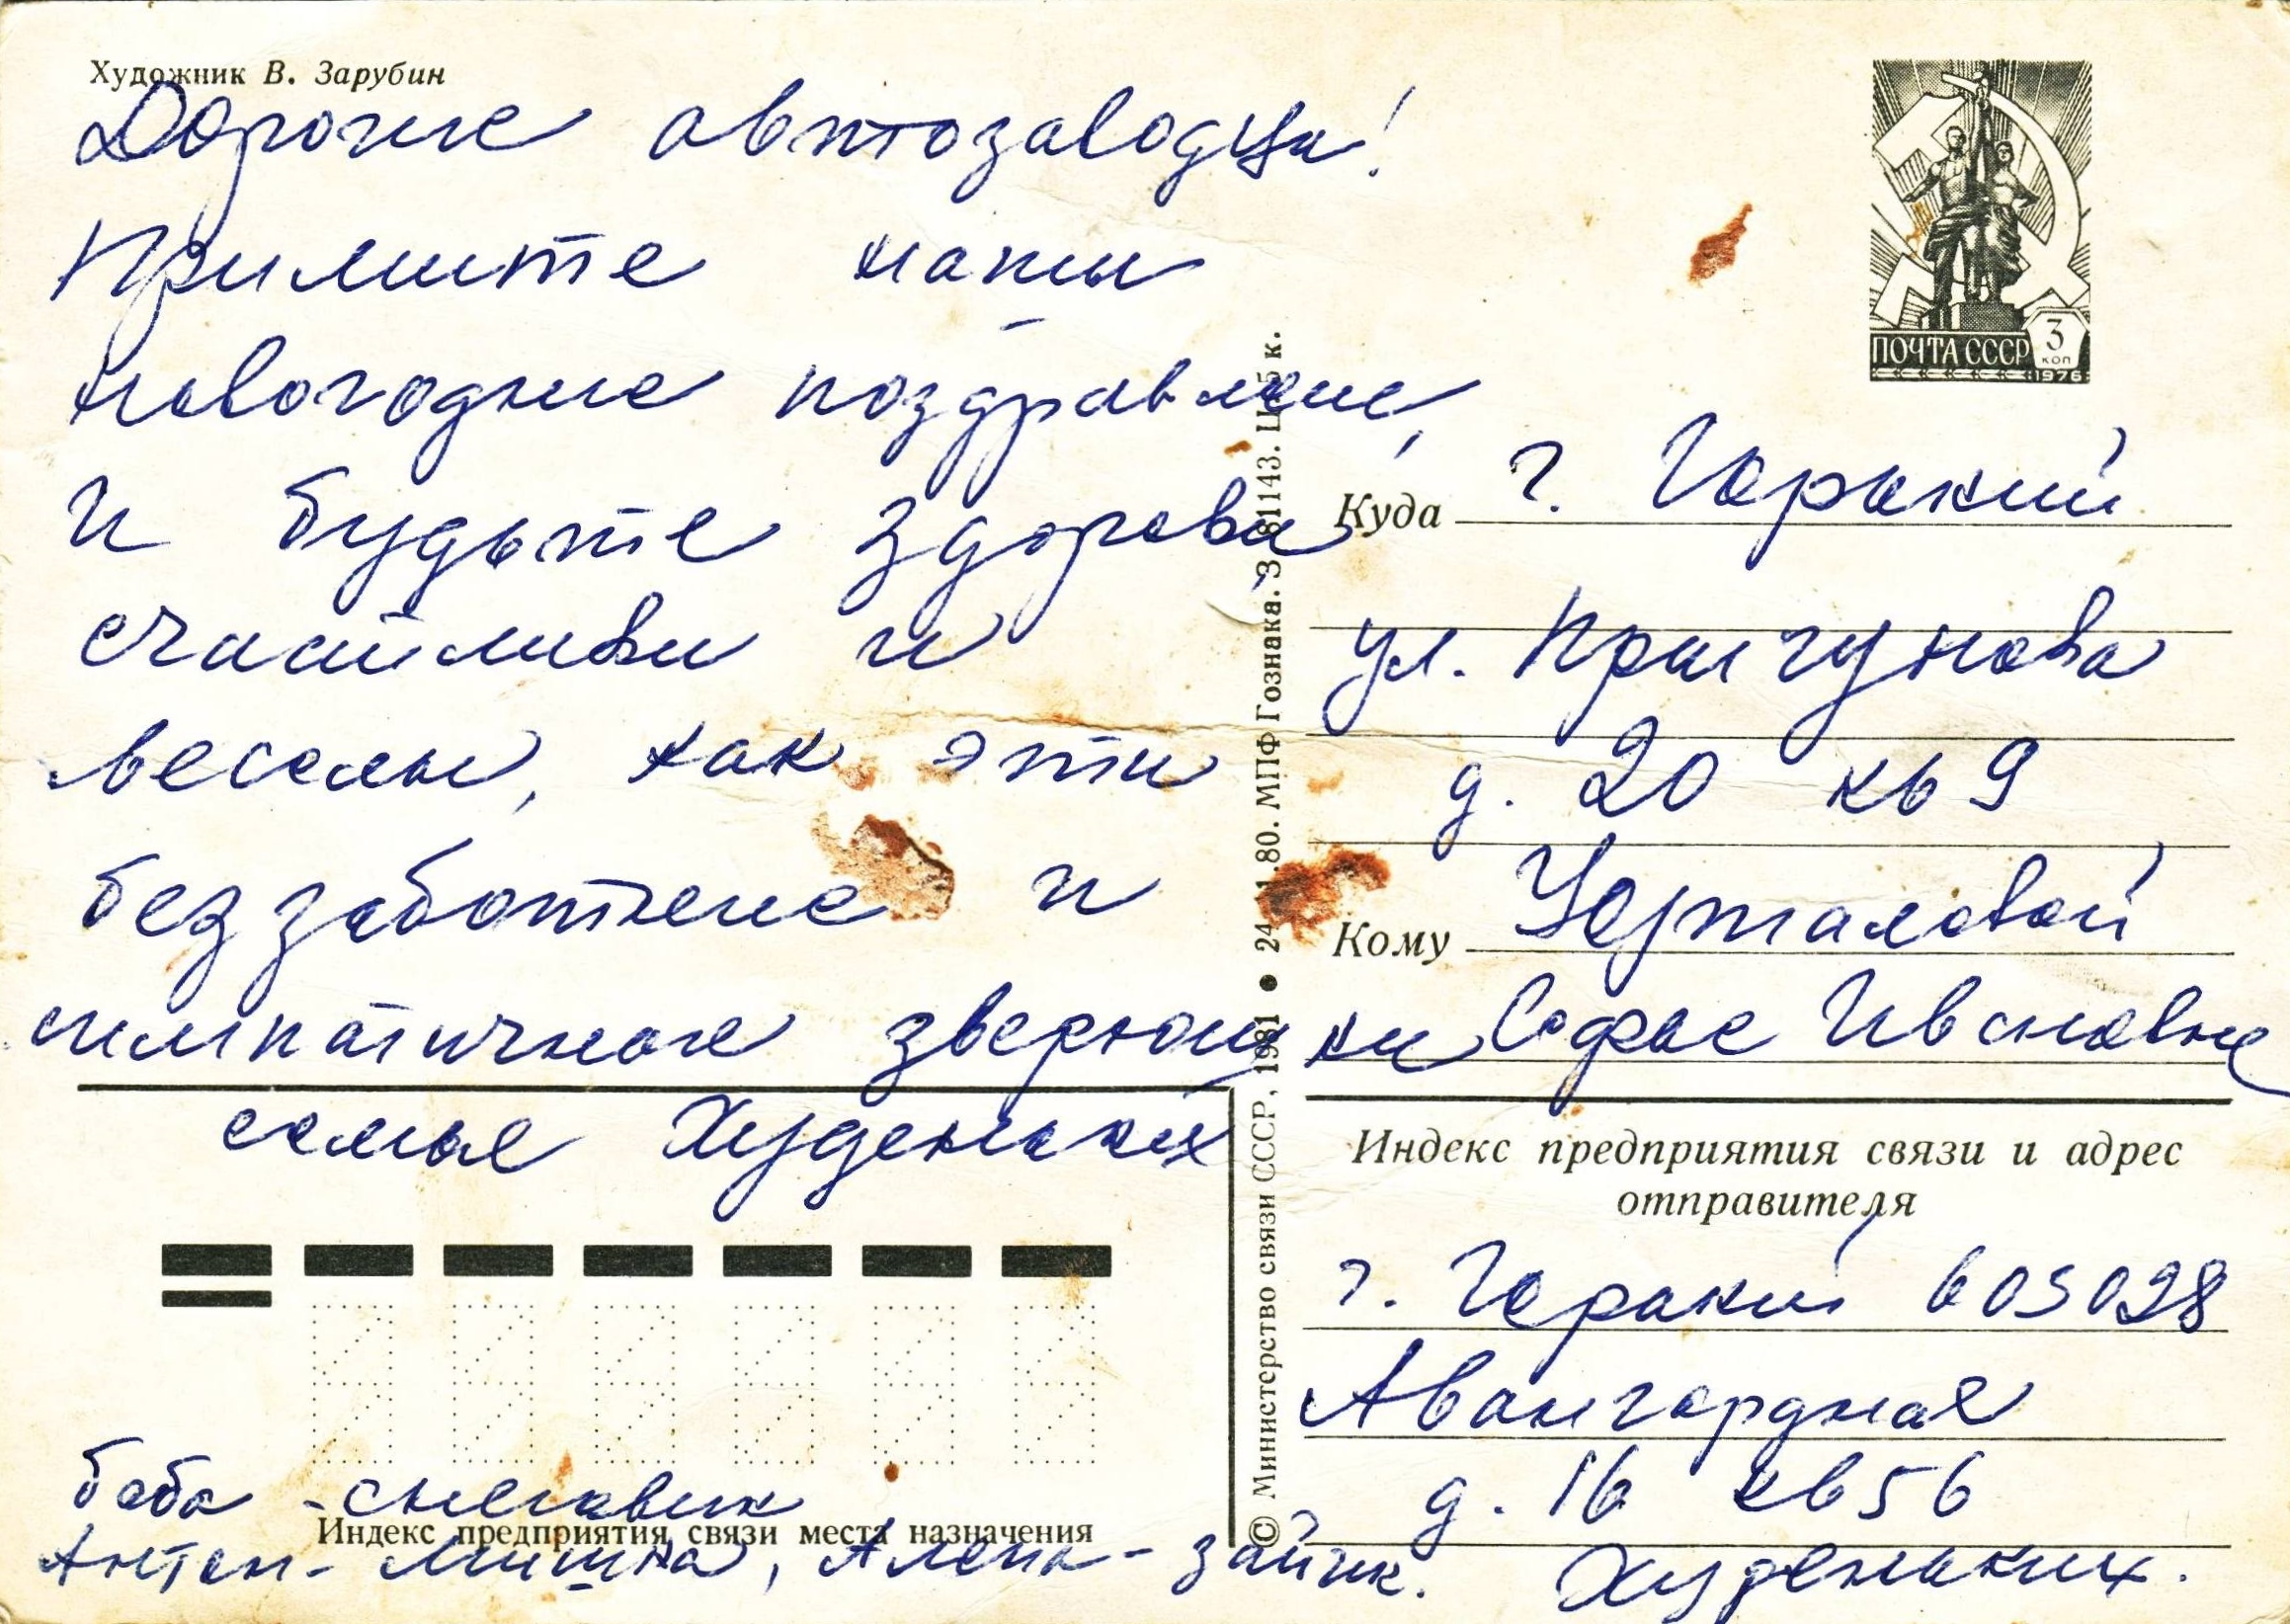 Художник В. Зарубин
Дорогие автозаводцы!
Примите наши
новогодние поздравление,
и будьте здоровы,
счастливы и
веселы, как эти
беззаботные и
симпатичные зверюшки
семья Худеньких
баба - снеговик
Антон - мишка, Алена - зайчик.
Индекс предприятия связи места назначения
© Министерство связи СССР, 1981 ● 24.11.80. МПФ Гознака. З. 81143. Ц. 5 к.
ПОЧТА СССР 3 коп
1976
Куда г. Горький
ул. Прыгунова
д. 20 кв 9
Кому
Софье Ивановне
Индекс предприятия связи и адрес
отправителя
г. Горький 603028
Авангардная
д. 16 кв 56
Худеньких.